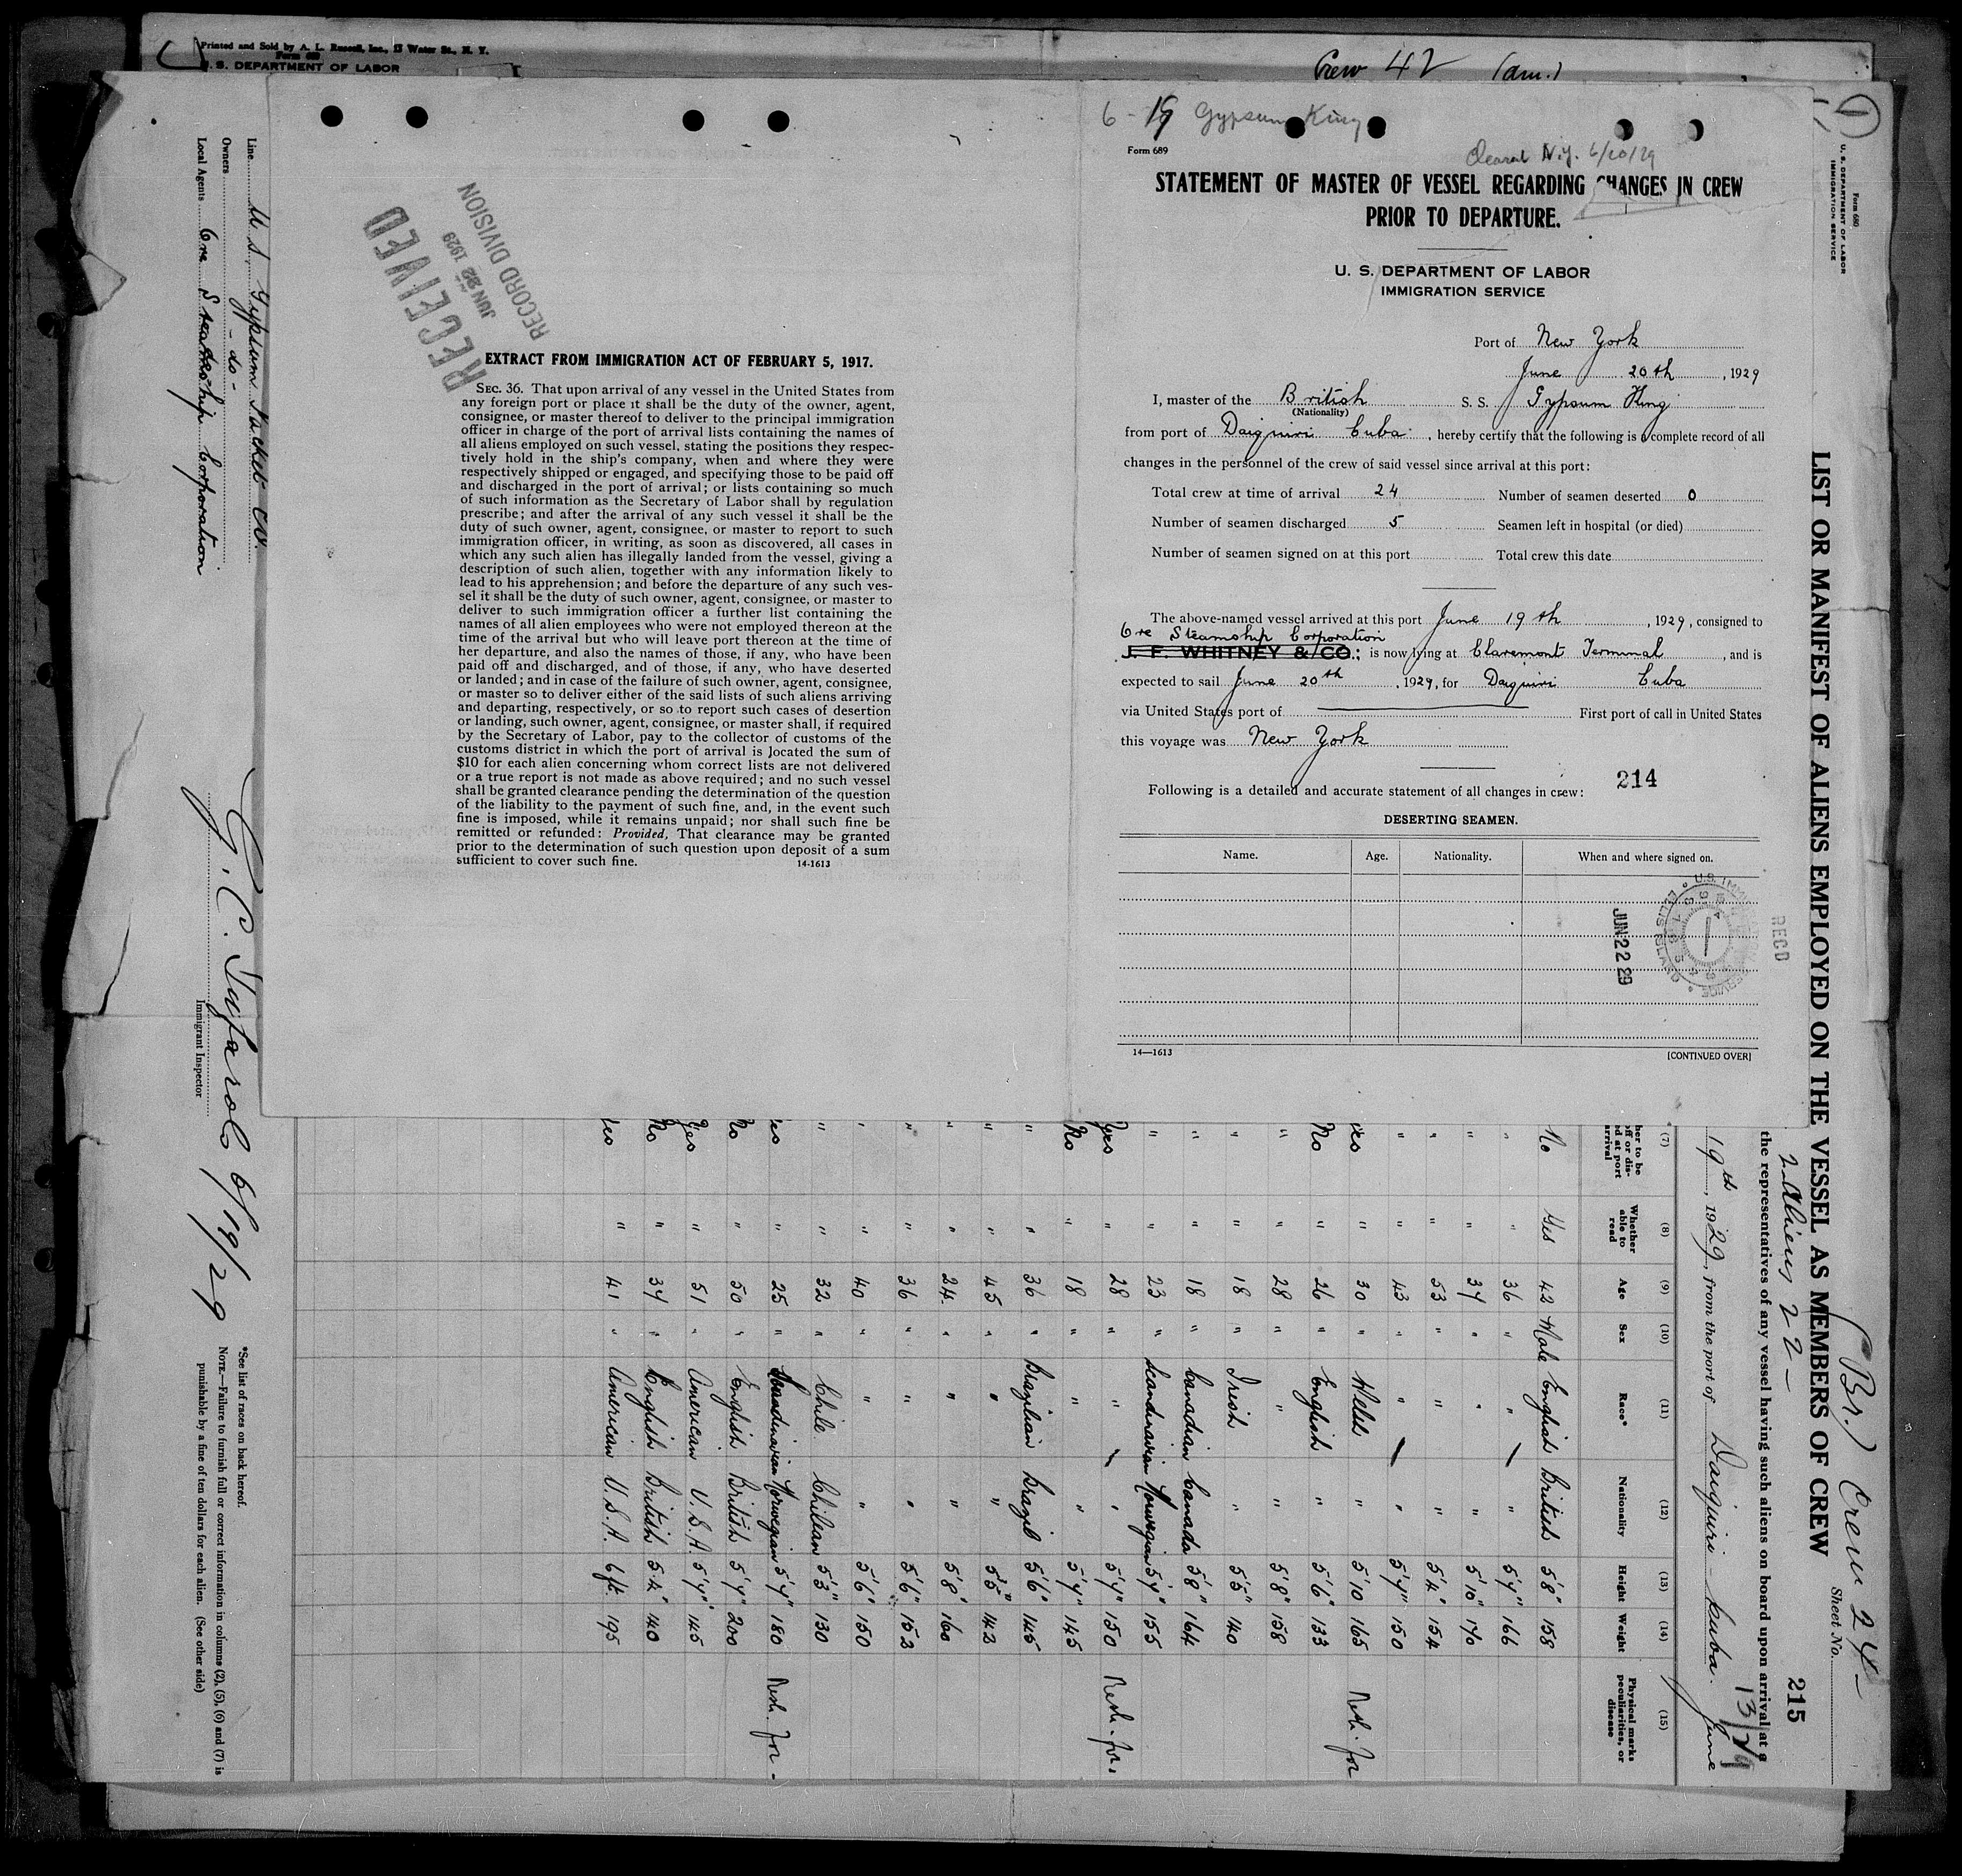 Printed and Sold by A. L. Russell, Inc., 13 Water St., N. Y.
Form 689
U. S. DEPARTMENT OF LABOR
Crew 42 (am.)
6-19 Gypsum King
Form 689
Cleared N.Y. 6/20/29
STATEMENT OF MASTER OF VESSEL REGARDING CHANGES IN CREW
PRIOR TO DEPARTURE.
U. S. DEPARTMENT OF LABOR
IMMIGRATION SERVICE
Port of New York
June 20th, 1929
I, master of the British S. S. Gypsum King
(Nationality)
from port of Daiquiri Cuba, hereby certify that the following is a complete record of all
changes in the personnel of the crew of said vessel since arrival at this port:
Total crew at time of arrival 24 Number of seamen deserted 0
Number of seamen discharged 5 Seamen left in hospital (or died)
Number of seamen signed on at this port Total crew this date
The above-named vessel arrived at this port June 19th, 1929, consigned to
Ore Steamship Corporation
J. F. WHITNEY & CO.; is now lying at Claremont Terminal, and is
expected to sail June 20th, 1929, for Daiquiri Cuba
via United States port of First port of call in United States
this voyage was New York
214
Following is a detailed and accurate statement of all changes in crew:
DESERTING SEAMEN.
Name. Age. Nationality. When and where signed on.
JUN 22 29
RECD
14—1613 [CONTINUED OVER]
RECEIVED
JUN 22 1929
RECORD DIVISION
EXTRACT FROM IMMIGRATION ACT OF FEBRUARY 5, 1917.
SEC. 36. That upon arrival of any vessel in the United States from
any foreign port or place it shall be the duty of the owner, agent,
consignee, or master thereof to deliver to the principal immigration
officer in charge of the port of arrival lists containing the names of
all aliens employed on such vessel, stating the positions they respec-
tively hold in the ship's company, when and where they were
respectively shipped or engaged, and specifying those to be paid off
and discharged in the port of arrival; or lists containing so much
of such information as the Secretary of Labor shall by regulation
prescribe; and after the arrival of any such vessel it shall be the
duty of such owner, agent, consignee, or master to report to such
immigration officer, in writing, as soon as discovered, all cases in
which any such alien has illegally landed from the vessel, giving a
description of such alien, together with any information likely to
lead to his apprehension; and before the departure of any such ves-
sel it shall be the duty of such owner, agent, consignee, or master to
deliver to such immigration officer a further list containing the
names of all alien employees who were not employed thereon at the
time of the arrival but who will leave port thereon at the time of
her departure, and also the names of those, if any, who have been
paid off and discharged, and of those, if any, who have deserted
or landed; and in case of the failure of such owner, agent, consignee,
or master so to deliver either of the said lists of such aliens arriving
and departing, respectively, or so to report such cases of desertion
or landing, such owner, agent, consignee, or master shall, if required
by the Secretary of Labor, pay to the collector of customs of the
customs district in which the port of arrival is located the sum of
$10 for each alien concerning whom correct lists are not delivered
or a true report is not made as above required; and no such vessel
shall be granted clearance pending the determination of the question
of the liability to the payment of such fine, and, in the event such
fine is imposed, while it remains unpaid; nor shall such fine be
remitted or refunded: Provided, That clearance may be granted
prior to the determination of such question upon deposit of a sum
sufficient to cover such fine. 14-1613
1
Form 680
U. S. DEPARTMENT OF LABOR
IMMIGRATION SERVICE
(Br.) Crew 24-
Sheet No.
LIST OR MANIFEST OF ALIENS EMPLOYED ON THE VESSEL AS MEMBERS OF CREW
215
2 Aliens 22-
the representatives of any vessel having such aliens on board upon arrival at a
19th, 1929, from the port of Daiquiri - Cuba. June
(7) (8) (9) (10) (11) (12) (13) (14) (15)
her to be off or dis- d at port arrival Whether able to read Age Sex Race* Nationality Height Weight Physical marks peculiarities, or disease
No Yes 42 Male English British 5'8" 158
" " 36 " " " 5'7" 166
" " 34 " " " 5'10" 170
" " 53 " " " 5'4" 154
" " 43 " " " 5'7" 150
Yes " 30 " Welsh " 5'10 165
No " 26 " English " 5'6" 133
" " 28 " " " 5'8" 158
" " 18 " Irish " 5'5" 140
" " 18 " Canadian Canada 5'8" 164
" " 23 " Scandinavian Norwegian 5'7" 155
Yes " 28 " " " 5'7" 150
No " 18 " " " 5'7" 145
" " 36 " Brazilian Brazil 5'6" 145
" " 45 " " " 5'5" 143
" " 24 " " " 5'8" 160
" " 36 " " " 5'6" 153
" " 40 " " " 5'6" 150
" " 32 " Chile Chilean 5'3" 130
Yes " 25 " Scandinavian Norwegian 5'7" 180
No " 50 " English British 5'7" 200
Yes " 51 " American U.S.A. 5'7" 145
No " 34 " English British 5'4" 140
Yes " 41 " American U.S.A. 6ft. 195
Line U. S. Gypsum Packet Co.
Owners -do-
Local Agents Ore Steamship Corporation
6/19/29
Immigrant Inspector
*See list of races on back hereof.
NOTE.—Failure to furnish full or correct information in columns (2), (5), (6) and (7) is
punishable by a fine of ten dollars for each alien. (See other side)